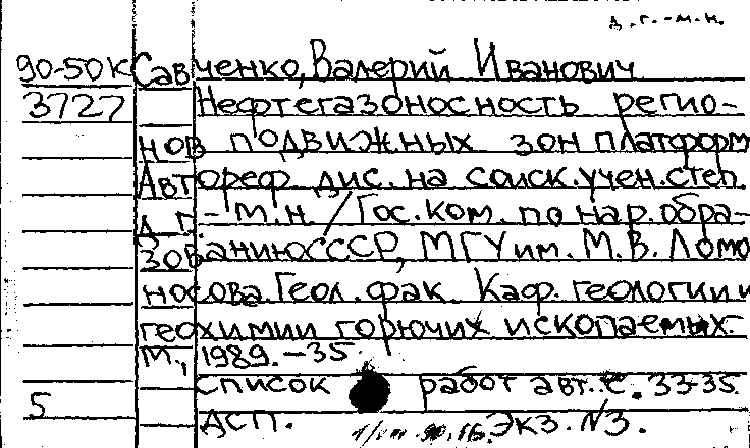 д.г.-м.н.
90-50к Савченко, Валерий Иванович
3727 Нефтегазоносность регио-
нов подвижных зон платформ
Автореф. дис. на соиск. учен. степ.
д.г.-м.н. / Гос. ком. по нар. обра-
зованию СССР, МГУ им. М.В. Ломо
носова. Геол. фак. Каф. геологии и
геохимии горючих ископаемых.
М., 1989. - 35
Список работ авт.: с. 33-35.
5
ДСП. Экз. N3.